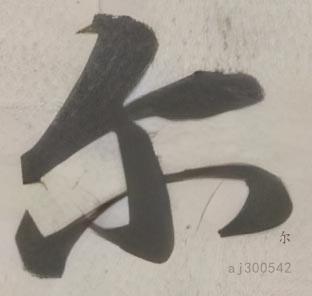 尔
尔
aj300542